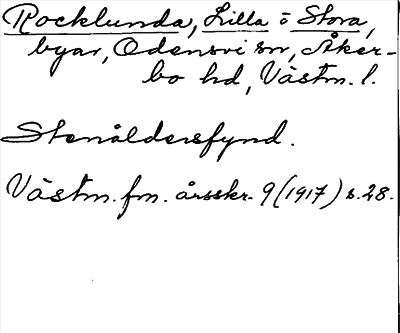 Rocklunda, Lilla o Stora,
byar, Odensvi sn, Åker-
bo hd, Västm. l.
Stenåldersfynd.
Västm. fm. årsskr. 9 (1917) s. 28.